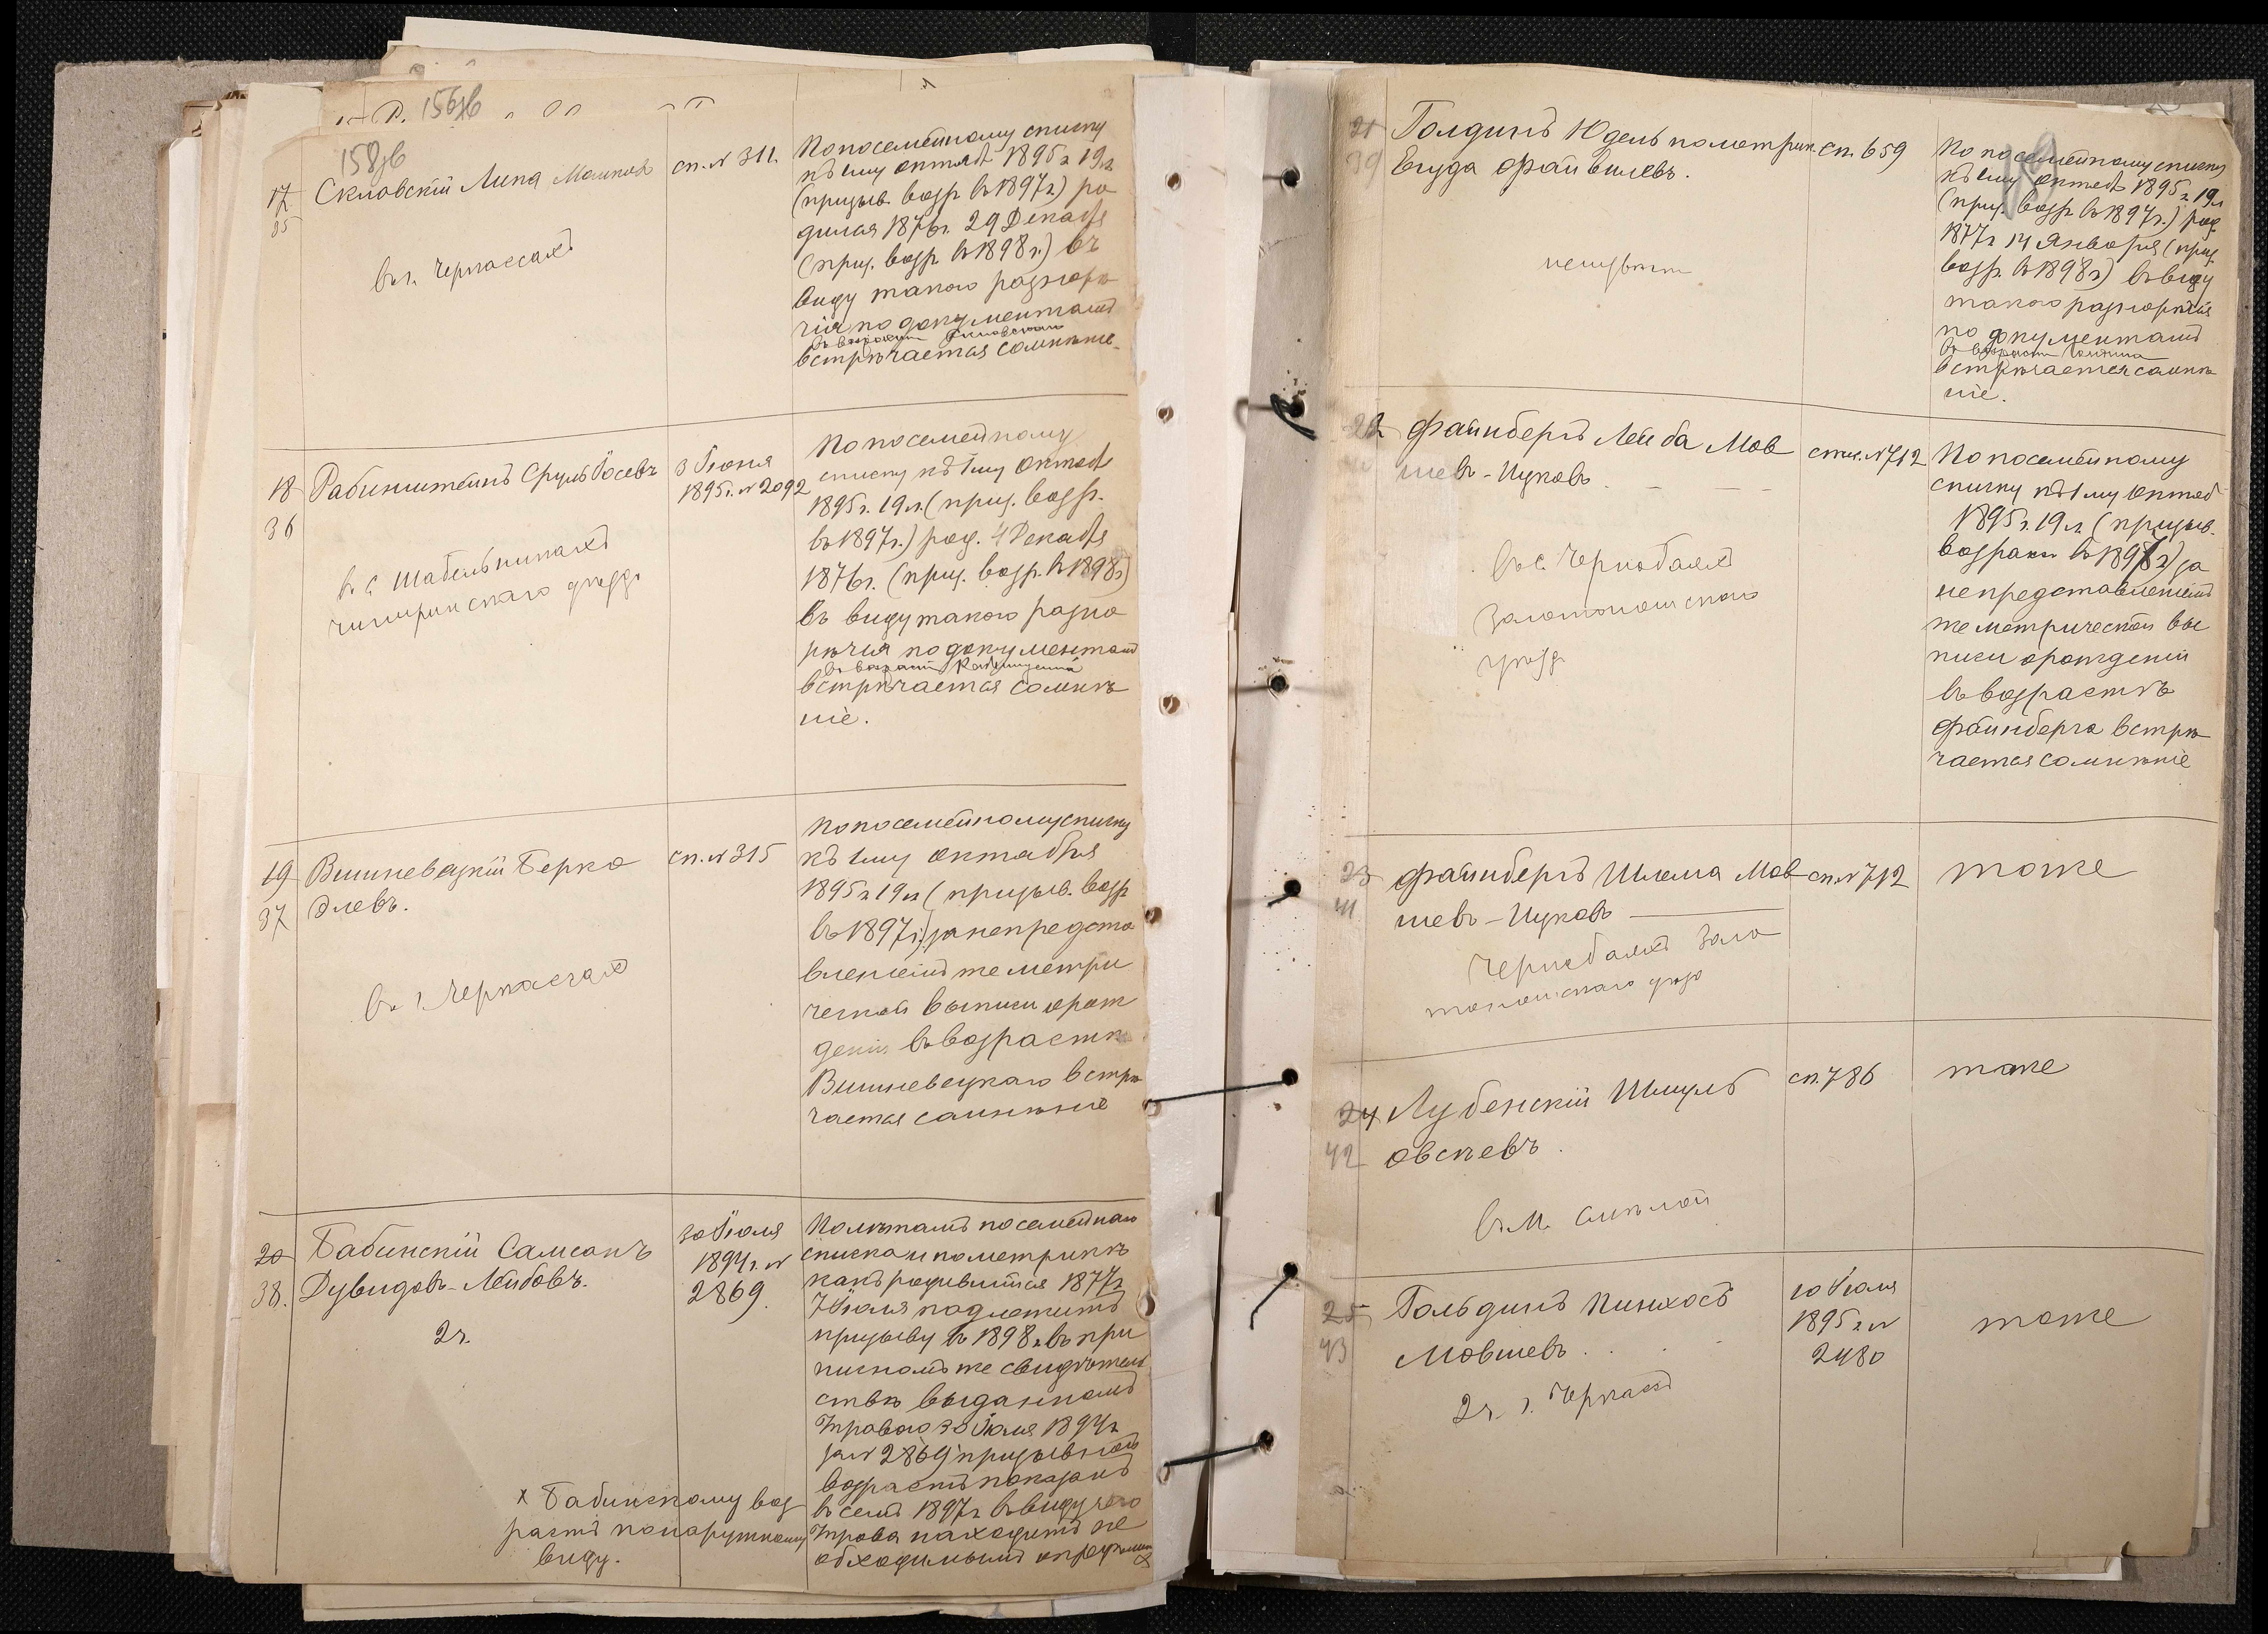 158об
17
35
Скловскій Липа Мошков
сп. № 311.
въ г. Черкассахъ
По посемейному списку
къ 1му октяб 1895 г. 19 л.
(призыв. возр. въ 1897 г.) ро
дился 1876 г. 29 Декабря
(приз. возр. въ 1898 г.) въ
виду такого разнорѣ
чія по документамъ
въ возрастѣ Скловскаго
встрѣчается сомнѣніе.
18
36
Рабинштейнъ Сруль Іосевъ
3 Іюня
1895 г. № 2092
въ с. Шабельникахъ
чигиринскаго уѣзда
По посемейному
списку къ 1му октяб
1895 г. 19 л. (приз. возр.
въ 1897 г.) род. 4 Декабря
1876 г. (приз. возр. въ 1898 г.)
въ виду такого разно
рѣчія по документам
въ возрастѣ
встрѣчается сомнѣ
ніе.
19
37
Вишневецкій Берко
Элевъ.
сп. № 315
въ г. Черкассахъ
По посемейному списку
къ 1му октября
1895 г. 19 л. (призыв. возр
въ 1897 г.) за непредста
вленіемъ же метри
ческой выписи о рож
деніи въ возрастѣ
Вишневецкаго встрѣ
чается сомнѣніе
20
38.
Бабинскій Самсонъ
Дувидовъ-Лейбовъ.
2ч.
30 Іюля
1894 г. №
2869.
По лѣтамъ посемейнаго
списка и по метрикѣ
какъ родившійся 1877 г.
7 Іюля подлежитъ
призыву въ 1898 г. въ при
писномъ же свидѣтель
ствѣ выданномъ
Управою 30 Іюля 1894 г.
за № 2869 призывной
возрастъ показанъ
въ семъ 1897 г. въ виду чего
Управа находитъ не
обходимымъ опредѣлить
х Бабинскому воз
растъ по наружному
виду.
21
39
Голдинъ Юдель по метрик.
Егуда Файвишевъ.
сп. 659
По посемейному списку
къ 1му октяб 1895 г. 19 л
(приз. возр. въ 1897 г.) род.
1877 г. 14 Января (приз.
возр. въ 1898 г.) въ виду
такого разнорѣчія
по документамъ
въ возрастѣ Голдина
встрѣчается сомнѣ
ніе.
22
40
Файнбергъ Лейба Мов
шевъ-Ицковъ.
спис. № 712
въ с. Чернобаяхъ
Золотоношскаго
уѣзд
По посемейному
списку къ 1му октяб
1895 г. 19 л. (призыв.
возраст. въ 1897 г.) за
непредставленіемъ
же метрической вы
писи о рожденіи
въ возрастѣ
Файнберга встрѣ
чается сомнѣніе
23
41
Файнбергъ Шлема Мов
шевъ-Ицковъ
сп. № 712
тоже
Чернобаяхъ Золо
тоношскаго уѣзд
24
42
Лубенскій Шмуль
Овсѣевъ.
сп. 786
тоже
въ м. Смѣлой
25
43
Гольдинъ Пинхосъ
Мовшевъ.
10 Іюля
1895 г. №
2480
тоже
2ч. г. Черкасъ